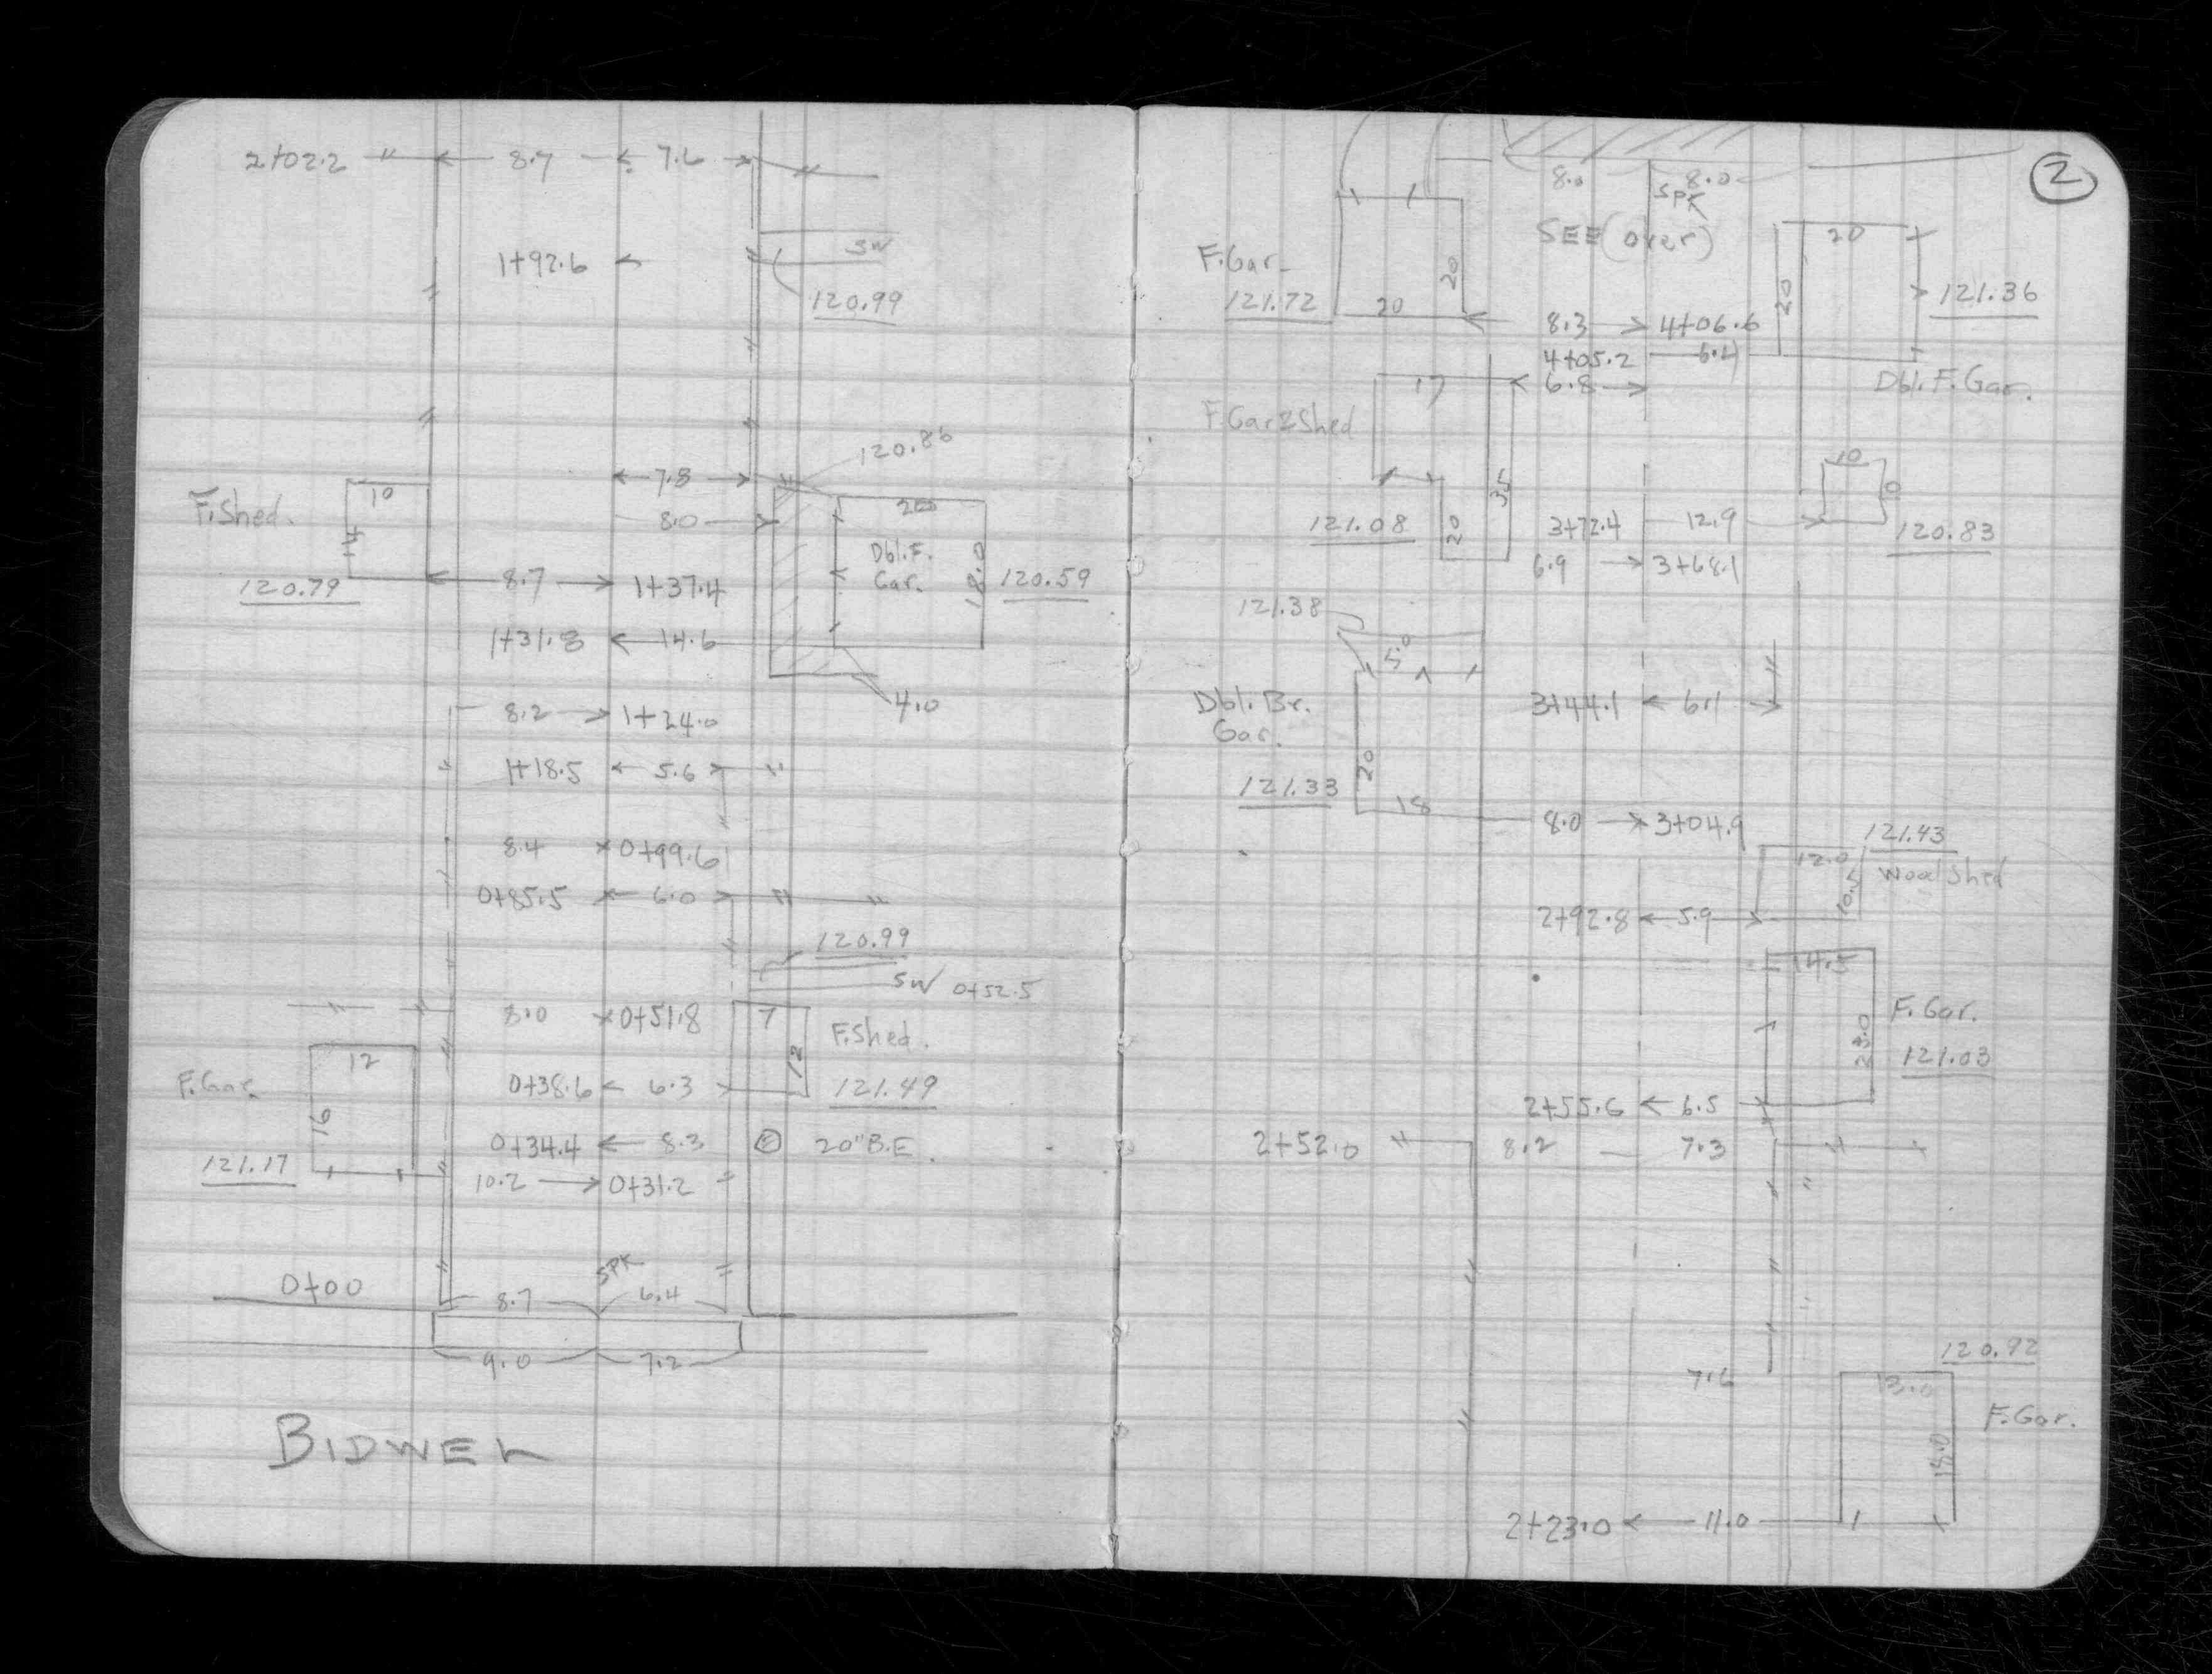 2+02.2 8.7 7.6
1+92.6 SW
120.99
120.86
7.8
F.Shed. 10 14 8.0 20
Dbl.F.
Gar.
120.79 8.7 1+37.4 120.59
1+31.8 14.6
4.0
8.2 1+24.0
1+18.5 5.6
8.4 0+99.6
0+85.5 6.0
120.99
SW 0+52.5
8.0 0+51.8 7 12 F.Shed.
F.Gar. 12 16 0+38.6 6.3 121.49
0+34.4 8.3 20" B.E.
121.17 10.2 0+31.2
SPK
0+00 8.7 6.4
9.0 7.2
BIDWEL
2
8.0 8.0
SPK
SEE (over)
F.Gar. 20 20
121.72 20 20 121.36
8.3 4+06.6
4+05.2 6.4
17 6.8 Dbl.F.Gar.
F.Gar & Shed 35 10 10
121.08 20 3+72.4 12.9 120.83
6.9 3+68.1
121.38
5.0
Dbl.Br.
Gar. 3+44.1 6.1
121.33 20 18
8.0 3+04.9 121.43
12.0 10.5 Wood Shed
2+92.8 5.9
14.5
23.0 F.Gar.
121.03
2+55.6 6.5
2+52.0 8.2 7.3
120.92
7.6 13.0
18.0 F.Gar.
2+23.0 11.0